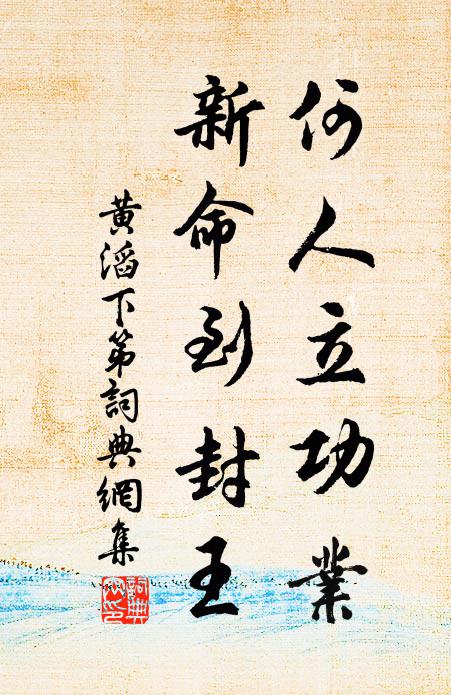 何人立功業
新命到封王
黃滔下第詞典網集